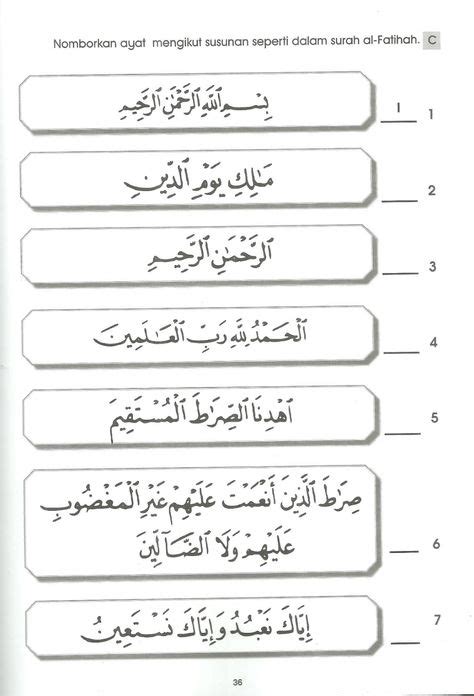 Nomborkan ayat mengikut susunan seperti dalam surah al-Fatihah. C
بِسْمِ ٱللَّهِ ٱلرَّحْمَٰنِ ٱلرَّحِيمِ ١ 1
مَٰلِكِ يَوْمِ ٱلدِّينِ 2
ٱلرَّحْمَٰنِ ٱلرَّحِيمِ 3
ٱلْحَمْدُ لِلَّهِ رَبِّ ٱلْعَٰلَمِينَ 4
ٱهْدِنَا ٱلصِّرَٰطَ ٱلْمُسْتَقِيمَ 5
صِرَٰطَ ٱلَّذِينَ أَنْعَمْتَ عَلَيْهِمْ غَيْرِ ٱلْمَغْضُوبِ
عَلَيْهِمْ وَلَا ٱلضَّآلِّينَ 6
إِيَّاكَ نَعْبُدُ وَإِيَّاكَ نَسْتَعِينُ 7
36